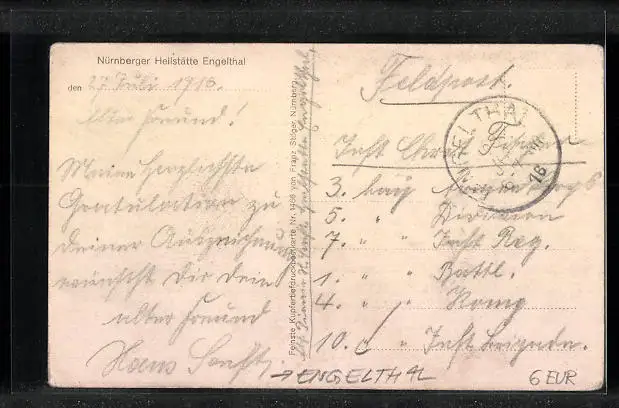 Nürnberger Heilstätte Engelthal
den 27 Juli 1916.
Alter Freund!
Meine herzlichste
Gratulation zu
deiner Auszeichnung
wünscht Dir dein
alter Freund
Hans
Feinste Kupfertiefdruckpostkarte Nr. 1466 von Franz Stöger, Nürnberg
Feldpost.
ENGELTHAL
16
Inft
3. bay
5. " Division
7. " " Inft Reg.
1. " " Battl.
4. " " Komp
10. Inft brigade.
→ ENGELTHAL
6 EUR